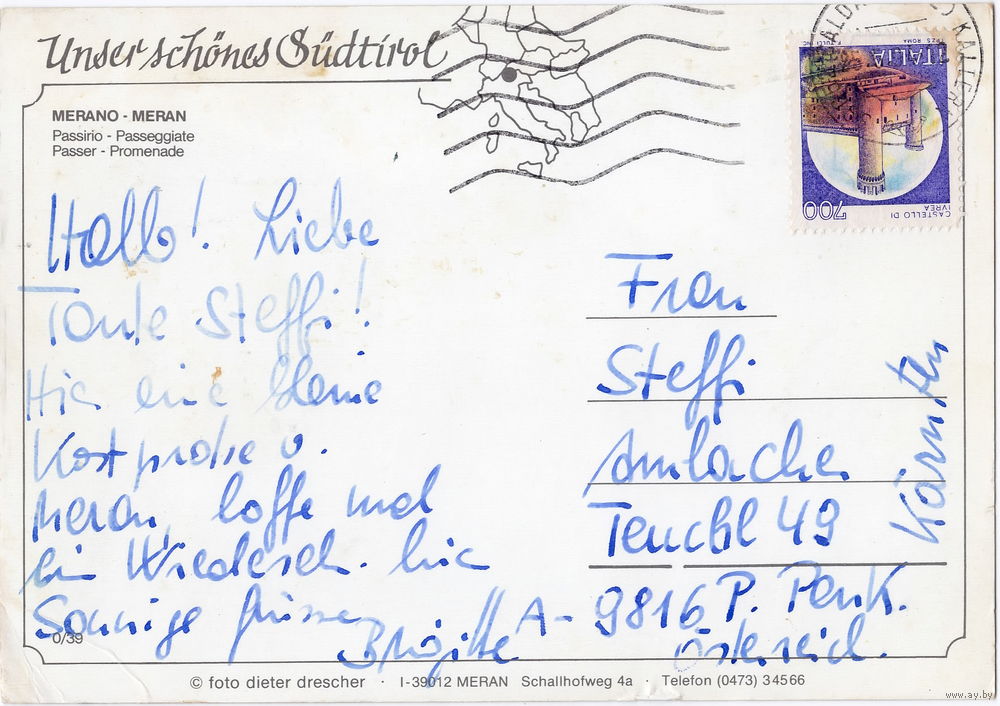 Unser schönes Südtirol
MERANO - MERAN
Passirio - Passeggiate
Passer - Promenade
Hallo! Liebe
Tante Steffi!
Hier eine kleine
Kostprobe v.
Meran, hoffe mal
ein Wiederseh. hier
Sonnige Grüsse
Brigitte
Frau
Steffi
Amlacher
Teuchl 49
A-9816 P. Penk.
Österreich.
Kärnten
ITALIA
700
CASTELLO DI
IVREA
I.P.Z.S. ROMA
KALTER
0/39
© foto dieter drescher · I-39012 MERAN Schallhofweg 4a · Telefon (0473) 34566
www.ay.by